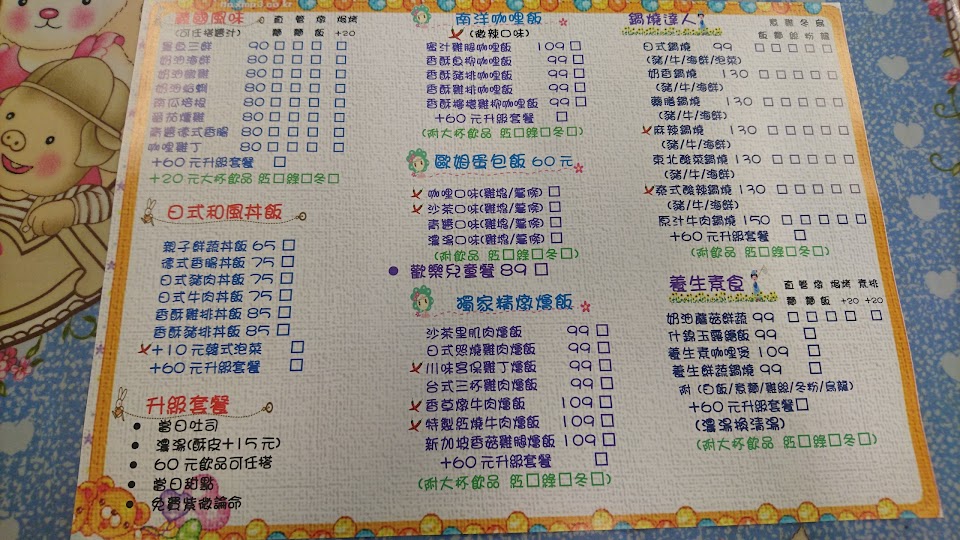 風味
(可任搭醬汁)
直麵 管麵 燉飯 焗烤+20
墨魚三鮮 90 □ □ □ □
奶油海鮮 80 □ □ □ □
奶油燻雞 80 □ □ □ □
奶油蛤蜊 80 □ □ □ □
南瓜培根 80 □ □ □ □
蕃茄燻雞 80 □ □ □ □
青醬德式香腸 80 □ □ □ □
咖哩雞丁 80 □ □ □ □
+60元升級套餐 □
+20元大杯飲品 紅□綠□冬□
日式和風丼飯
親子鮮蔬丼飯 65 □
德式香腸丼飯 75 □
日式豬肉丼飯 75 □
日式牛肉丼飯 75 □
香酥雞排丼飯 85 □
香酥豬排丼飯 85 □
+10元韓式泡菜 □
+60元升級套餐 □
升級套餐
● 當日吐司
● 濃湯(酥皮+15元)
● 60元飲品可任搭
● 當日甜點
● 免費紫微論命
南洋咖哩飯
(微辣口味)
蜜汁雞腿咖哩飯 109 □
香酥魚柳咖哩飯 99 □
香酥豬排咖哩飯 99 □
香酥雞排咖哩飯 99 □
香酥檸檬雞柳咖哩飯 99 □
+60元升級套餐 □
(附大杯飲品 紅□綠□冬□)
歐姆蛋包飯 60元
咖哩口味(雞塊/薯條) □
沙茶口味(雞塊/薯條) □
青醬口味(雞塊/薯條) □
濃湯口味(雞塊/薯條) □
(附大杯飲品 紅□綠□冬□)
● 歡樂兒童餐 89 □
獨家精燉燴飯
沙茶里肌肉燴飯 99 □
日式照燒雞肉燴飯 99 □
川味宮保雞丁燴飯 99 □
台式三杯雞肉燴飯 99 □
香草燉牛肉燴飯 109 □
特製紅燒牛肉燴飯 109 □
新加坡香菇雞腿燴飯 109 □
+60元升級套餐 □
(附大杯飲品 紅□綠□冬□)
鍋燒達人
飯 意麵 雞絲 冬粉 烏龍
日式鍋燒 99 □ □ □ □ □
(豬/牛/海鮮/泡菜)
奶香鍋燒 130 □ □ □ □ □
(豬/牛/海鮮)
藥膳鍋燒 130 □ □ □ □ □
(豬/牛/海鮮)
麻辣鍋燒 130 □ □ □ □ □
(豬/牛/海鮮)
東北酸菜鍋燒 130 □ □ □ □ □
(豬/牛/海鮮)
泰式酸辣鍋燒 130 □ □ □ □ □
(豬/牛/海鮮)
原汁牛肉鍋燒 150 □ □ □ □ □
+60元升級套餐 □
(附大杯飲品 紅□綠□冬□)
養生素食
直麵 管麵 燉飯 焗烤+20 素排+20
奶油蘑菇鮮蔬 99 □ □ □ □ □
什錦玉露燴飯 99 □
養生素咖哩煲 109 □
養生鮮蔬鍋燒 99 □
附(白飯/意麵/雞絲/冬粉/烏龍)
+60元升級套餐□
(濃湯換清湯)
(附大杯飲品 紅□綠□冬□)